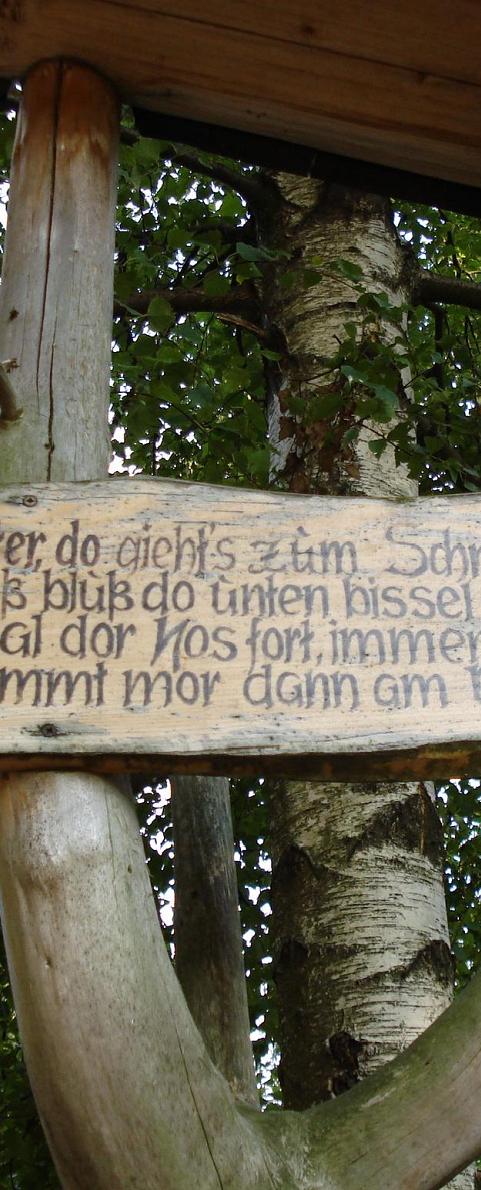 er, do gieht's zùm Schn
ß blùß do ùnten bissel
al dor Nos fort, immer
mmt mor dann am